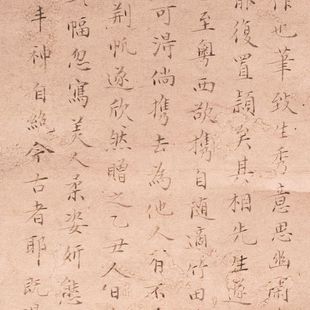 也筆致生秀意思幽
復置矣其相先生遂
至粵西欲携自随適竹田
可淂倘携去為他人有不
荆帆遂欣然贈之乙丑人日
幅忽寫美人柔姿妍態
丰神自絶今古者耶既